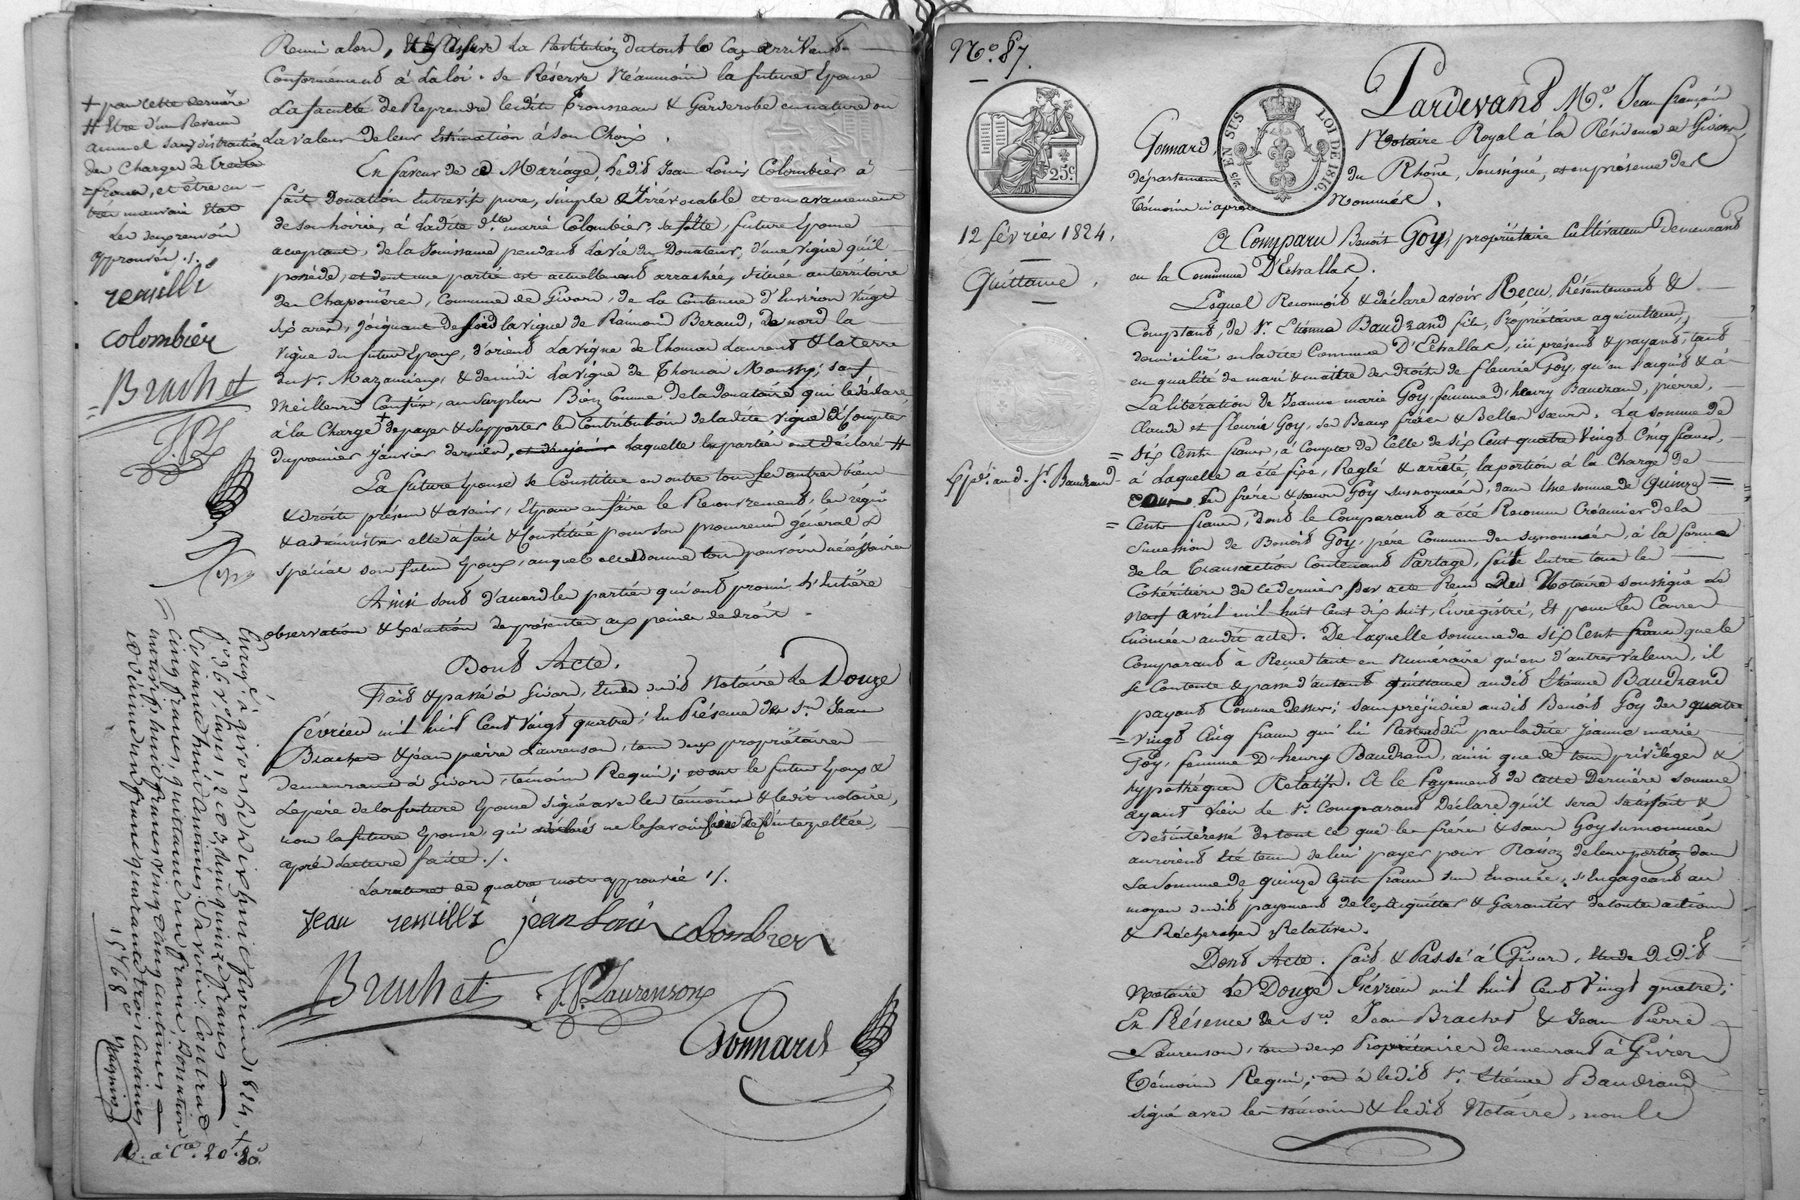 Remis alors, et la Restitution du tout le cas arrivant
Conformément à la loi. Se Réserve Néanmoins la future Epouse
La faculté de Reprendre lesdits Trousseau & Garderobe en nature ou
La valeur de leur Estimation à Son Choix.
En faveur de ce Mariage, ledit Jean Louis Colombier à
fait donation Entrevifs pure, simple & Irrévocable et en avancement
de son hoirie, à ladite dlle marie Colombier, sa fille, future Epouse
aceptant, de la Jouissance pendant la vie du Donateur, d'une vigne qu'il
possède, et dont une partie est actuellement arrachée, située au territoire
de Chaponières, Commune de Givors, de la Contenue d'Environ vingt
six ares, joignant de soir la vigne de Raimond Beraud, de nord la
vigne du futur Epoux, d'orient la vigne de Thomas Laurent & la terre
du Sr. Mazamieux, & de midi la vigne de Thomas Moussy; sauf
meilleurs Confins, au surplus Bien Connue de la donataire qui le déclare
à la Charge + de payer & supporter la Contribution de ladite vigne à Compter
du premier Janvier dernier, laquelle les parties ont déclaré #
La future Epouse se Constitue en outre tous ses autres biens
& droits présens & avenir, Et pour en faire le Recouvrement, les régir
& administrer elle a fait & Constitué pour son procureur général &
spécial son futur Epoux, auquel elle donne tous pouvoirs nécéssaires
Ainsi sont d'accord les parties qui ont promis l'Entière
observation & Exécution des présentes aux peines de droit.
Dont Acte.
Fait & passé à Givors, Etude dudit Notaire le Douze
février mil huit Cent vingt quatre; En Présence des Srs Jean
Brachet & Jean pierre Laurenson, tous deux propriétaires
demeurans à Givors, témoins Requis; le futur Epoux &
Le père de la future Epouse signé avec les témoins & ledit notaire,
non la future Epouse, qui ne le savoir faire de ce interpellée,
après Lecture faite ./.
La rature de quatre mots approuvée ./.
Jean remillé jean Louis colombier
Brachet J.P. Laurenson
Gonnard
+ pour cette dernière
# Etre d'un Revenu
annuel sans distraction
des Charges de trente
francs, et être en
très mauvais Etat
Les deux renvois
approuvés ./.
remillé
colombier
Brachet
J.P.L
Enregistré à givors le dix huit février 1824,
fo. 6 Vo. Cases, 1, 2 & 3, Reçu quinze francs
Soixante huit Centimes, Savoir: Contrat
cinq francs, quittance un franc, Donation
mariage huit francs Vingt Cinq centimes
et dixieme un franc quarante trois centimes
15f 68c
No. 87.
25c
EN SUS
LOI DE 1816.
12 février 1824.
Quittance.
Expédn. aud. Sr. Baudrand
Pardevant Me. Jean françois
Gonnard, Notaire Royal à la Résidence de Givors,
département du Rhône, Soussigné, et en présence des
témoins ci après Nommés.
A Comparu Benoit Goy, propriétaire Cultivateur demeurant
en la Commune D'Echallas.
Lequel Reconnoit & déclare avoir Recu Présentement &
Comptant, de Sr. Etienne Baudrand fils, Propriétaire agriculteur,
domicilié en ladite Commune D'Echallas, ici présent & payant, tant
en qualité de mari & maitre des droits de fleurie Goy, qu'en l'acquis & à
La libération de Jeanne marie Goy, femme d'henry Baudrand, pierre,
Claude et fleurie Goy, ses Beaux frères & Belles Sœurs. La somme de
Six Cents francs, à Compte de Celle de six Cent quatre Vingt Cinq francs,
à Laquelle a été fixé, Reglé & arrêté, la portion à la Charge de
frère & sœurs Goy susnommés, dans Une somme de Quinze
Cents francs, dont le Comparant a été Reconnu Créancier de la
succession de Benoit Goy, père Commun des susnommés, à la forme
de la Transaction Contenant Partage, faite Entre tous les
Cohéritiers de ce dernier par acte Recu Notaire soussigné Le
Neuf avril mil huit Cent dix huit, Enregistré, Et pour les Causes
Enoncées audit acte. De laquelle somme de six Cents francs que le
Comparant à Recue tant en Numéraire qu'en d'autres valeurs, il
se Contente & passe d'autant quittance audit Etienne Baudrand
payant Comme dessus; sans préjudice audit Benoit Goy des quatre
Vingt Cinq francs qui lui Restent dus par ladite Jeanne marie
Goy, femme D'henry Baudrand, ainsi que de tous privilèges &
hypothèques Relatifs. Et le Payement de cette Dernière somme
ayant Lieu le Sr. Comparant Déclare qu'il sera satisfait &
Désintéressé de tout ce que les frères & sœurs Goy susnommés
auroient Eté tenus de lui payer pour Raison de leur portion dans
La Somme de quinze Cents francs sus Enoncée, s'Engageant au
moyen dudit payement de les acquitter & Garantir de toutes actions
& Recherches Relatives.
Dont Acte. fait & Passé à Givors, Etude dudit
Notaire Le Douze Février mil huit Cent Vingt quatre;
En Présence des Srs. Jean Brachet & Jean Pierre
Laurenson, tous deux Propriétaires demeurant à Givors
Témoins Requis; & à ledit Sr. Etienne Baudrand
signé avec les témoins & ledit Notaire, non le